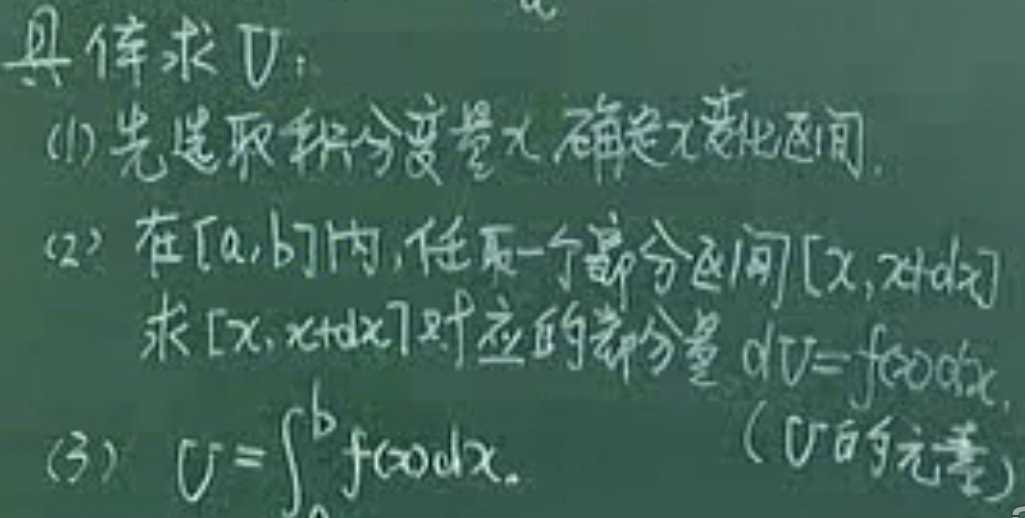 具体求 U:
(1) 先选取积分变量x 确定x变化区间.
(2) 在[a,b]内,任取一个部分区间[x,x+dx]
求[x,x+dx]对应的部分量 dU=f(x)dx.
(U的元素)
(3) U=∫ₐᵇ f(x)dx.